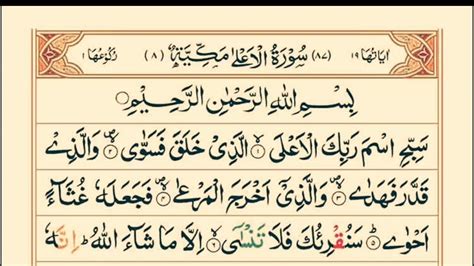 اٰیَاتُهَا ١٩ (٨٧) سُوْرَةُ الْاَعْلٰى مَكِّيَّةٌ (٨) رُكُوْعُهَا ١
بِسْمِ اللّٰهِ الرَّحْمٰنِ الرَّحِيْمِ
سَبِّحِ اسْمَ رَبِّكَ الْاَعْلَى ۙ﴿١﴾ الَّذِيْ خَلَقَ فَسَوّٰى ۪ۙ﴿٢﴾ وَالَّذِيْ
قَدَّرَ فَهَدٰى ۪ۙ﴿٣﴾ وَالَّذِيْۤ اَخْرَجَ الْمَرْعٰى ۪ۙ﴿٤﴾ فَجَعَلَهٗ غُثَآءً
اَحْوٰى ؕ﴿٥﴾ سَنُقْرِئُكَ فَلَا تَنْسٰۤى ۙ﴿٦﴾ اِلَّا مَا شَآءَ اللّٰهُ ؕ اِنَّهٗ